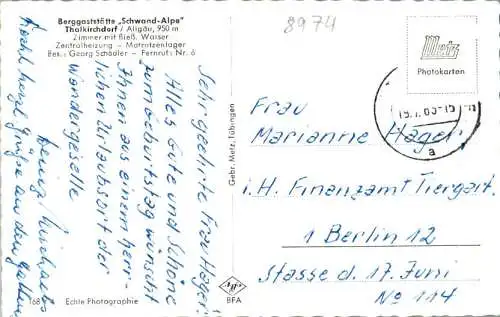 Berggaststätte „Schwand-Alpe"
Thalkirchdorf / Allgäu, 950 m
Zimmer mit fließ. Wasser
Zentralheizung – Matratzenlager
Bes.: Georg Schädler – Fernruf: Nr. 6
8974
Metz
Photokarten
Sehr geehrte Frau Hager!
Alles Gute und Schöne
zum Geburtstag wünscht
Ihnen aus einem herr-
lichen Urlaubsort der
Wandergeselle
Heinz
Noch herzl. Grüße an den Gatten
Gebr. Metz, Tübingen
Frau
Marianne Hager
i. H. Finanzamt Tiergart.
1 Berlin 12
Strasse d. 17. Juni
No 114
a
168
Echte Photographie
Agfa
BPA